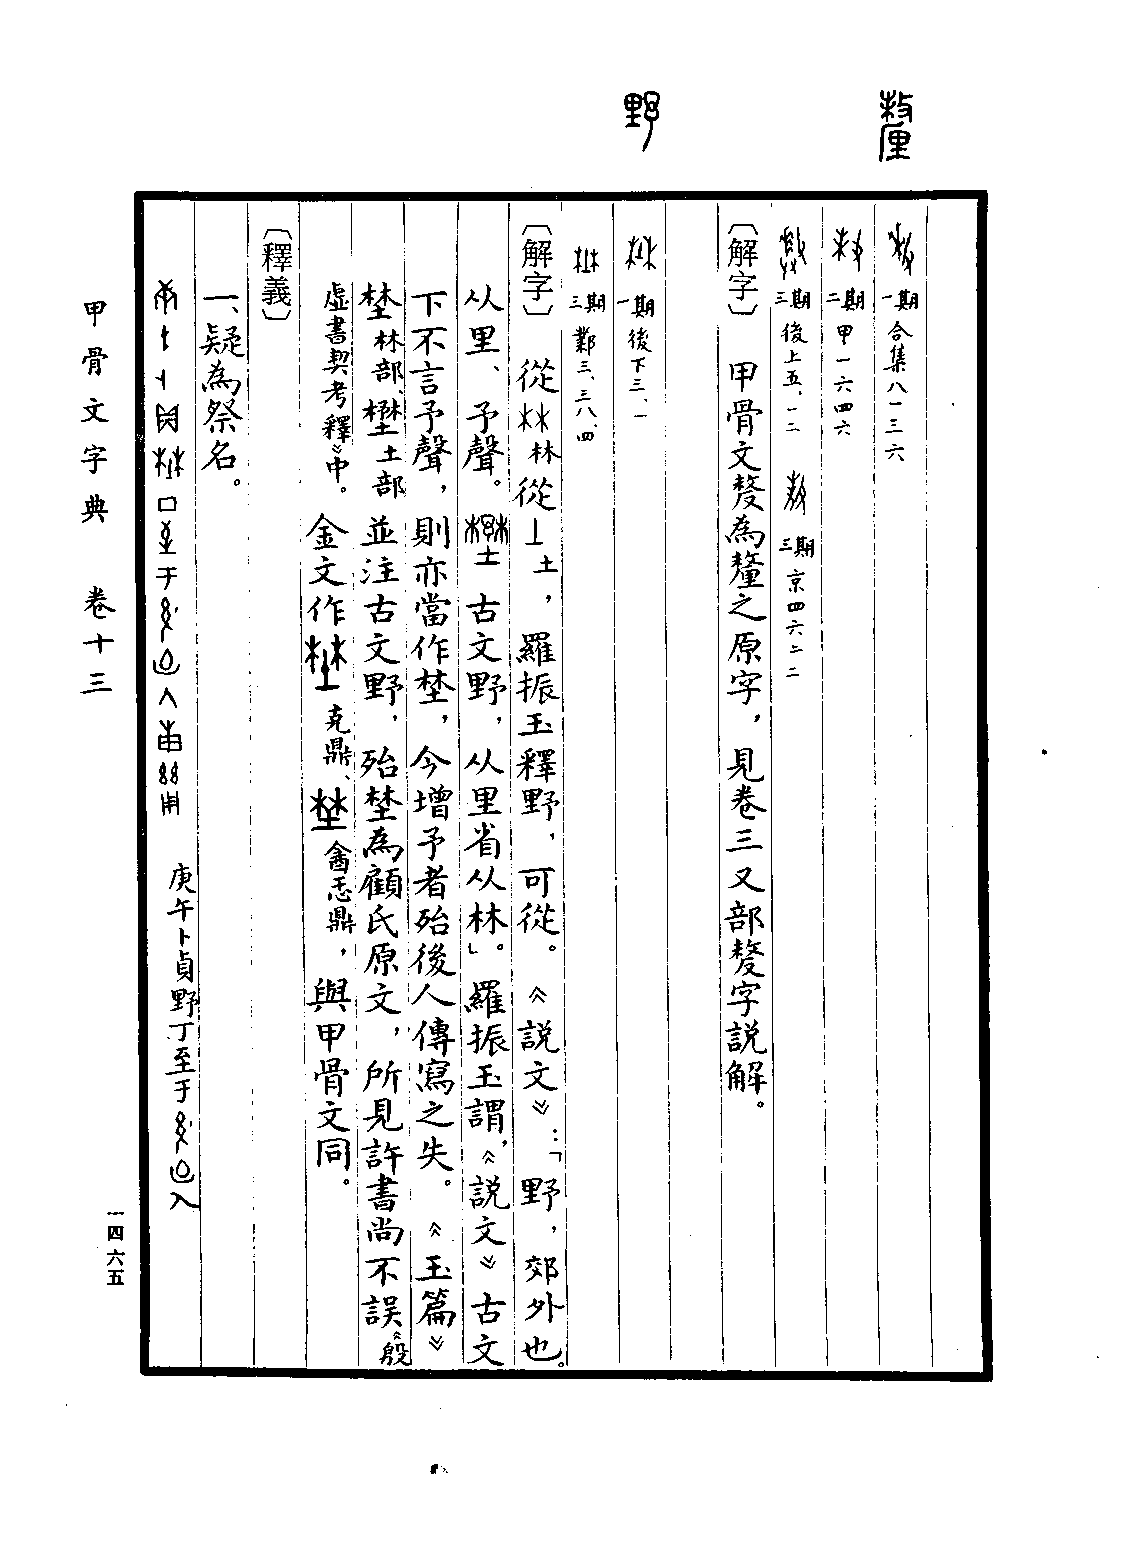 釐
野
一期 合集八一三六
二期 甲一六四六
三期 後上五、一二 三期 京四六二二
〔解字〕 甲骨文𠩺為釐之原字，見卷三又部𠩺字說解。
一期 後下三、一
三期 鄴三、三八、四
〔解字〕 從林從土，羅振玉釋野，可從。《說文》：「野，郊外也。
从里、予聲。 古文野，从里省从林」。羅振玉謂，《說文》古文
下不言予聲，則亦當作埜，今增予者殆後人傳寫之失。《玉篇》
埜林部、壄土部並注古文野，殆埜為顧氏原文，所見許書尚不誤《殷
虛書契考釋》中。金文作克鼎、酓忎鼎，與甲骨文同。
〔釋義〕
一、疑為祭名。
庚午卜貞野丁至于入
甲骨文字典 卷十三
一四六五